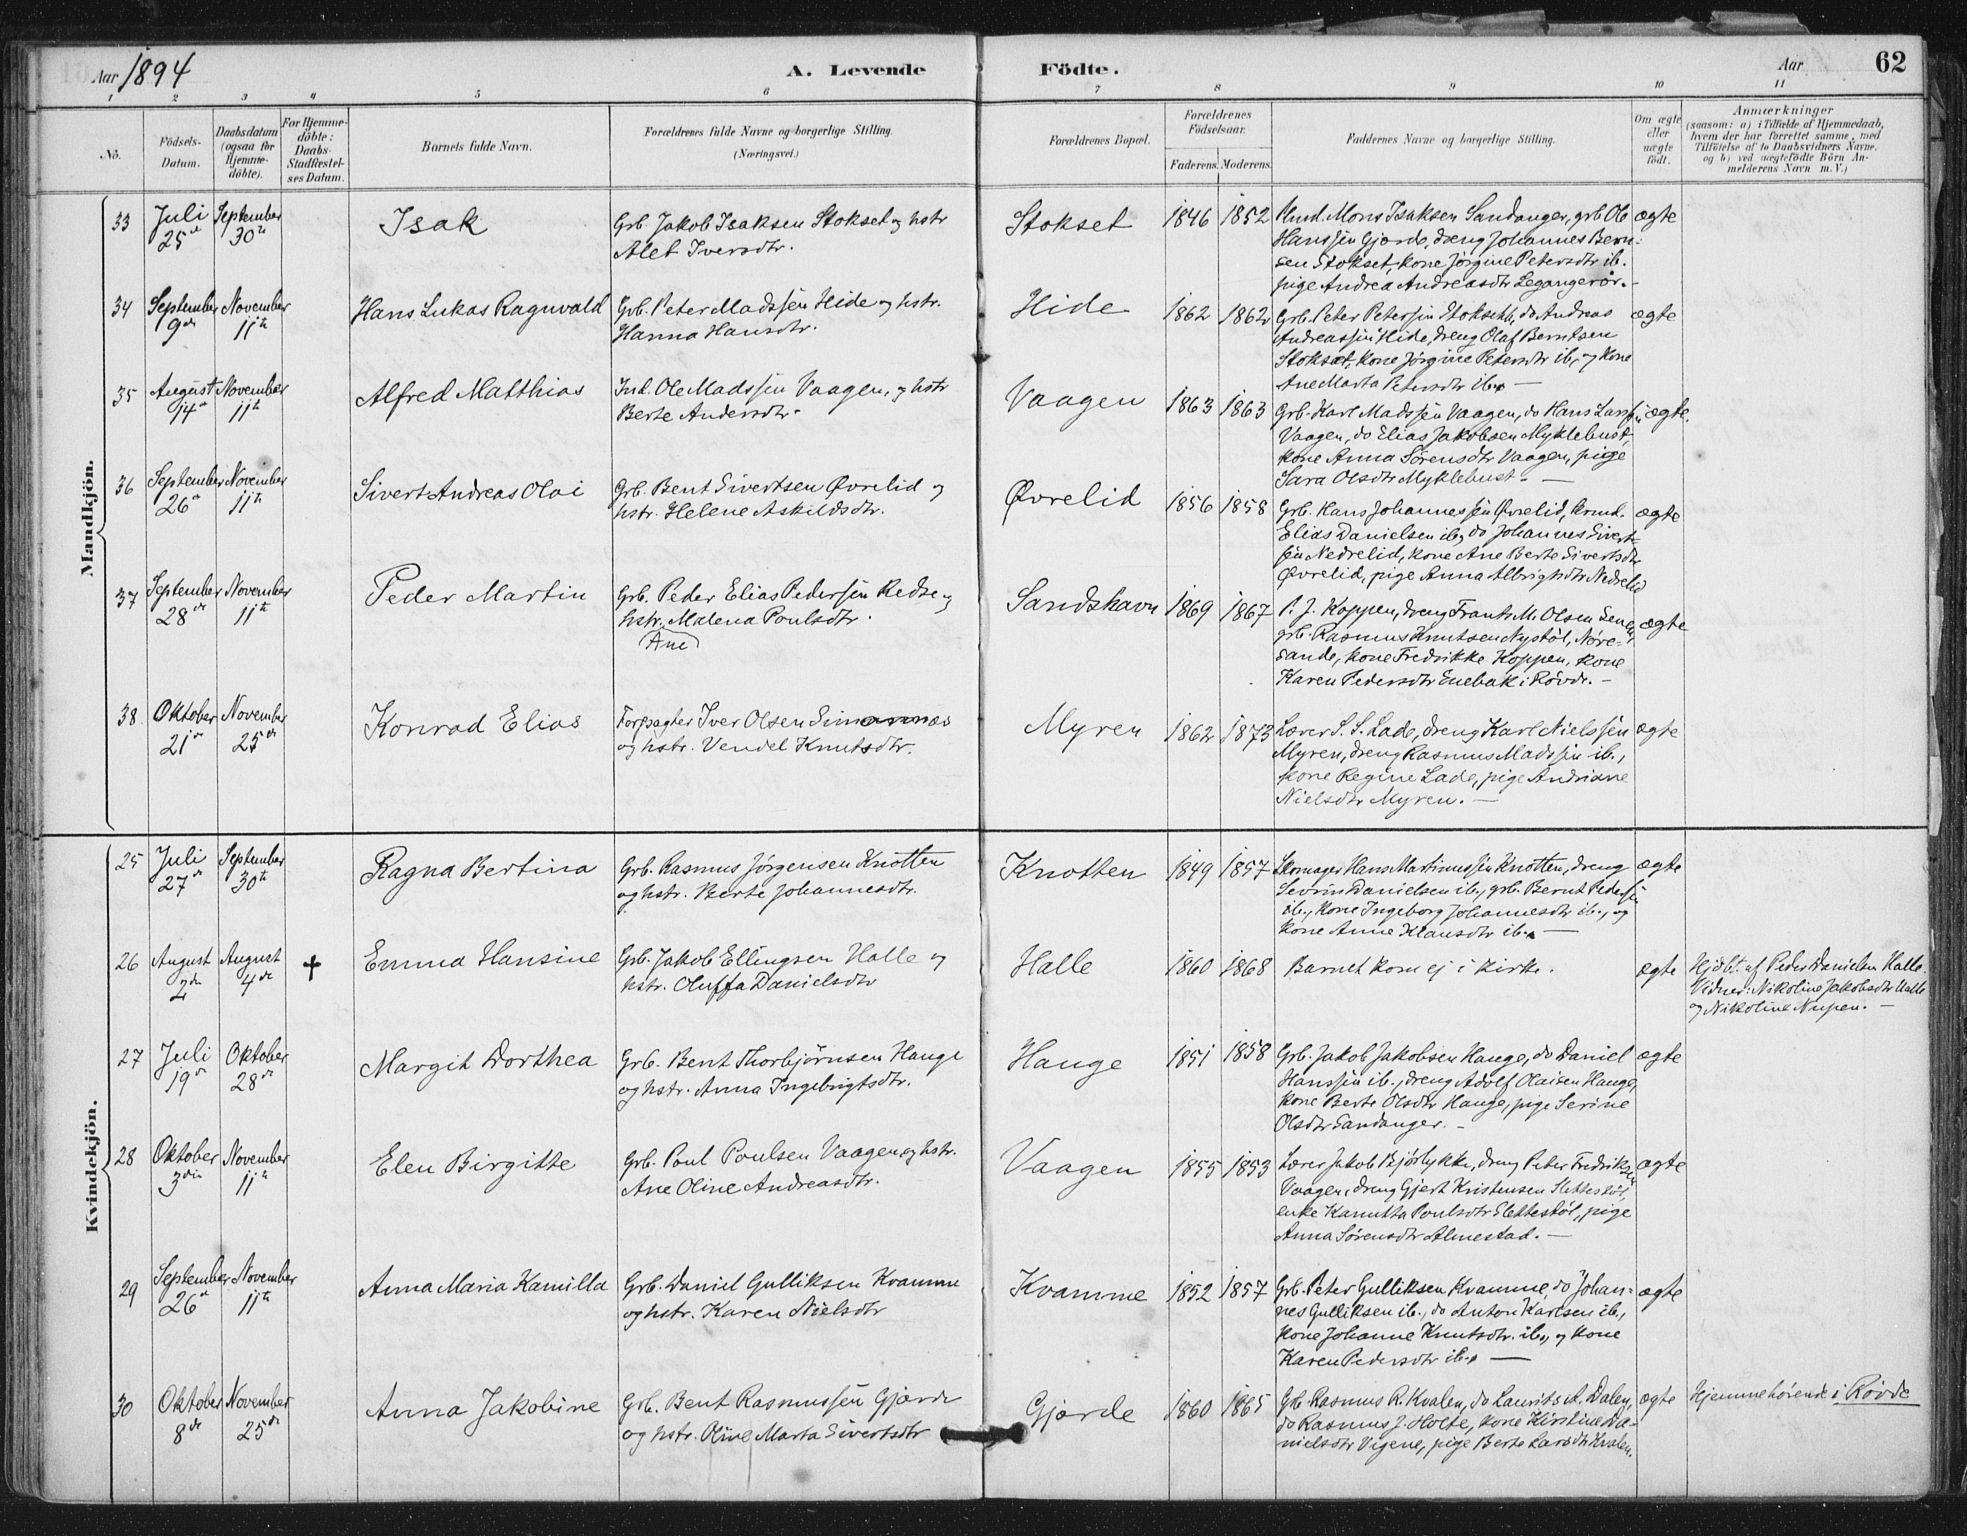 Aar 1894
A. Levende Födte.
Aar
62
1 2 3 4 5 6 7 8 9 10 11
No.
Födsels-Datum.
Daabsdatum (ogsaa for Hjemme-döbte).
For Hjemme-döbte: Daabs-Stadfæstel-ses Datum.
Barnets fulde Navn.
Forældrenes fulde Navne og borgerlige Stilling.
(Næringsvei.)
Forældrenes Bopæl.
Forældrenes Födselsaar.
Faderens. Moderens.
Faddernes Navne og borgerlige Stilling.
Om ægte eller uægte födt.
Anmærkninger
(saasom: a) i Tilfælde af Hjemmedaab,
hvem der har forrettet samme, med
Tilföielse af to Daabsvidners Navne,
og b) ved uægtefödte Börn An-
melderens Navn m. V.)
Mandkjön.
33 Juli 25de September 30te Isak
Grb. Jakob Isaksen Stokset og hstr
Alet Iversdtr.
Stokset 1846 1852
Mons Isaksen Sandanger, grb. Ole
Hanssen Gjorde, dreng Johannes Bern-
sen Stokset, kone Jørgine Petersdtr ib.
pige Andrea Andreasdtr Legangerør. -
ægte
34 September 9de November 11te Hans Lukas Ragnvald
Grb. Peter Madssen Hide og hstr.
Hanna Hansdtr.
Hide 1862 1862
Grb. Peter Petersen Stokset, do Andreas
Andreassen Hide, dreng Olaf Berntsen
Stokset, kone Jørgine Petersdtr ib, og kone
Ane Marta Petersdtr ib. -
ægte
35 August 14de November 11te Alfred Matthias
Ind. Ole Madssen Vaagen, og hstr
Berte Andersdtr.
Vaagen 1863 1863
Grb. Karl Madssen Vaagen, do Hans Larssen
Vaagen, do Elias Jakobsen Myklebust,
kone Anna Sørensdtr Vaagen, pige
Sara Olsdtr Myklebust. -
ægte.
36 September 26de November 11te Sivert Andreas Olai
Grb. Bent Sivertsen Øvrelid og
hstr. Helene Askildsdtr.
Øvrelid 1856 1858
Grb. Hans Johannessen Øvrelid,
Elias Danielsen ib, do Johannes Sivert-
sen Nedrelid, kone Ane Berte Sivertsdtr
Øvrelid, pige Anna Albrigtsdtr Nedrelid
ægte
37 September 28de November 11te Peder Martin
Grb. Peder Elias Pedersen Redse og
hstr. Malena Poulsdtr.
(Ane)
Sandshavn 1869 1867
P. J. Koppen, dreng Frants M. Olsen
grb. Rasmus Knutsen Nystøl, Nøre-
sande, kone Fredrikke Koppen, kone
Karen Pedersdtr Enebak i Røvde. -
ægte
38. Oktober 21de November 25de Konrad Elias
Forpagter Iver Olsen Simonnæs
og hstr. Vendel Knutsdtr.
Myren 1862 1873
Lærer S. S. Lade, dreng Karl Nielssen
Myren, dreng Rasmus Madssen ib.,
kone Regine Lade, pige Andriane
Nielsdtr Myren. -
ægte
Kvindekjön.
25 Juli 27de September 30te Ragna Bertina
Grb. Rasmus Jørgensen Knotten
og hstr. Berte Johannesdtr.
Knotten 1849 1857
Skomager Hans Martinussen Knotten, dreng
Sevrin Danielsen ib., grb. Bernt Pedersen
ib., kone Ingeborg Johannesdtr ib., og
kone Anne Klausdtr ib. -
ægte
26 August 2den August 4de + Emma Hansine
Grb. Jakob Ellingsen Halle og
hstr. Oluffa Danielsdtr
Halle 1860 1868
Barnet kom ej i Kirke.
ægte
Hjdbt. af Peder Danielsen Halle.
Vidner: Nikoline Jakobsdtr Halle
og Nikoline Nupen. -
27 Juli 19de Oktober 28de Margit Dorthea
Grb. Bent Thorbjørnsen Hauge
og hstr. Anna Ingebrigtsdtr.
Hauge 1851 1858
Grb. Jakob Jakobsen Hauge, do Daniel
Hanssen ib., dreng Adolf Olaisen Hauge,
kone Berte Olsdtr Hauge, pige Serine
Olsdtr Sandanger. -
ægte
28 Oktober 3die November 11te Elen Birgitte
Grb. Poul Poulsen Vaagen og hstr.
Ane Oline Andreasdtr.
Vaagen 1855 1853
Lærer Jakob Bjørlykke, dreng Peter Fredriksen
Vaagen, dreng Gjert Kristensen Slettestøl,
enke Kanutta Poulsdtr Slettestøl, pige
Anna Sørensdtr Almestad. -
ægte
29 September 26de November 11te Anna Maria Kamilla
Grb. Daniel Gulliksen Kvamme
og hstr. Karen Nielsdtr
Kvamme 1852 1857
Grb. Peter Gulliksen Kvamme, do Johan-
nes Gulliksen ib., do Anton Karlsen ib.,
kone Johanne Knutsdtr. ib., og kone
Karen Pedersdtr ib. -
ægte
30 Oktober 8de November 25de Anna Jakobine
Grb. Bent Rasmussen Gjørde
og hstr. Olive Marta Sivertsdtr
Gjørde 1860 1865
Grb. Rasmus R. Kvalen, do Laurits A. Dalen,
do Rasmus J. Holte, kone Kirstine Da-
nielsdtr Vigene, pige Berte Larsdtr Kvalen.
ægte
Hjemmehørende i Røvde